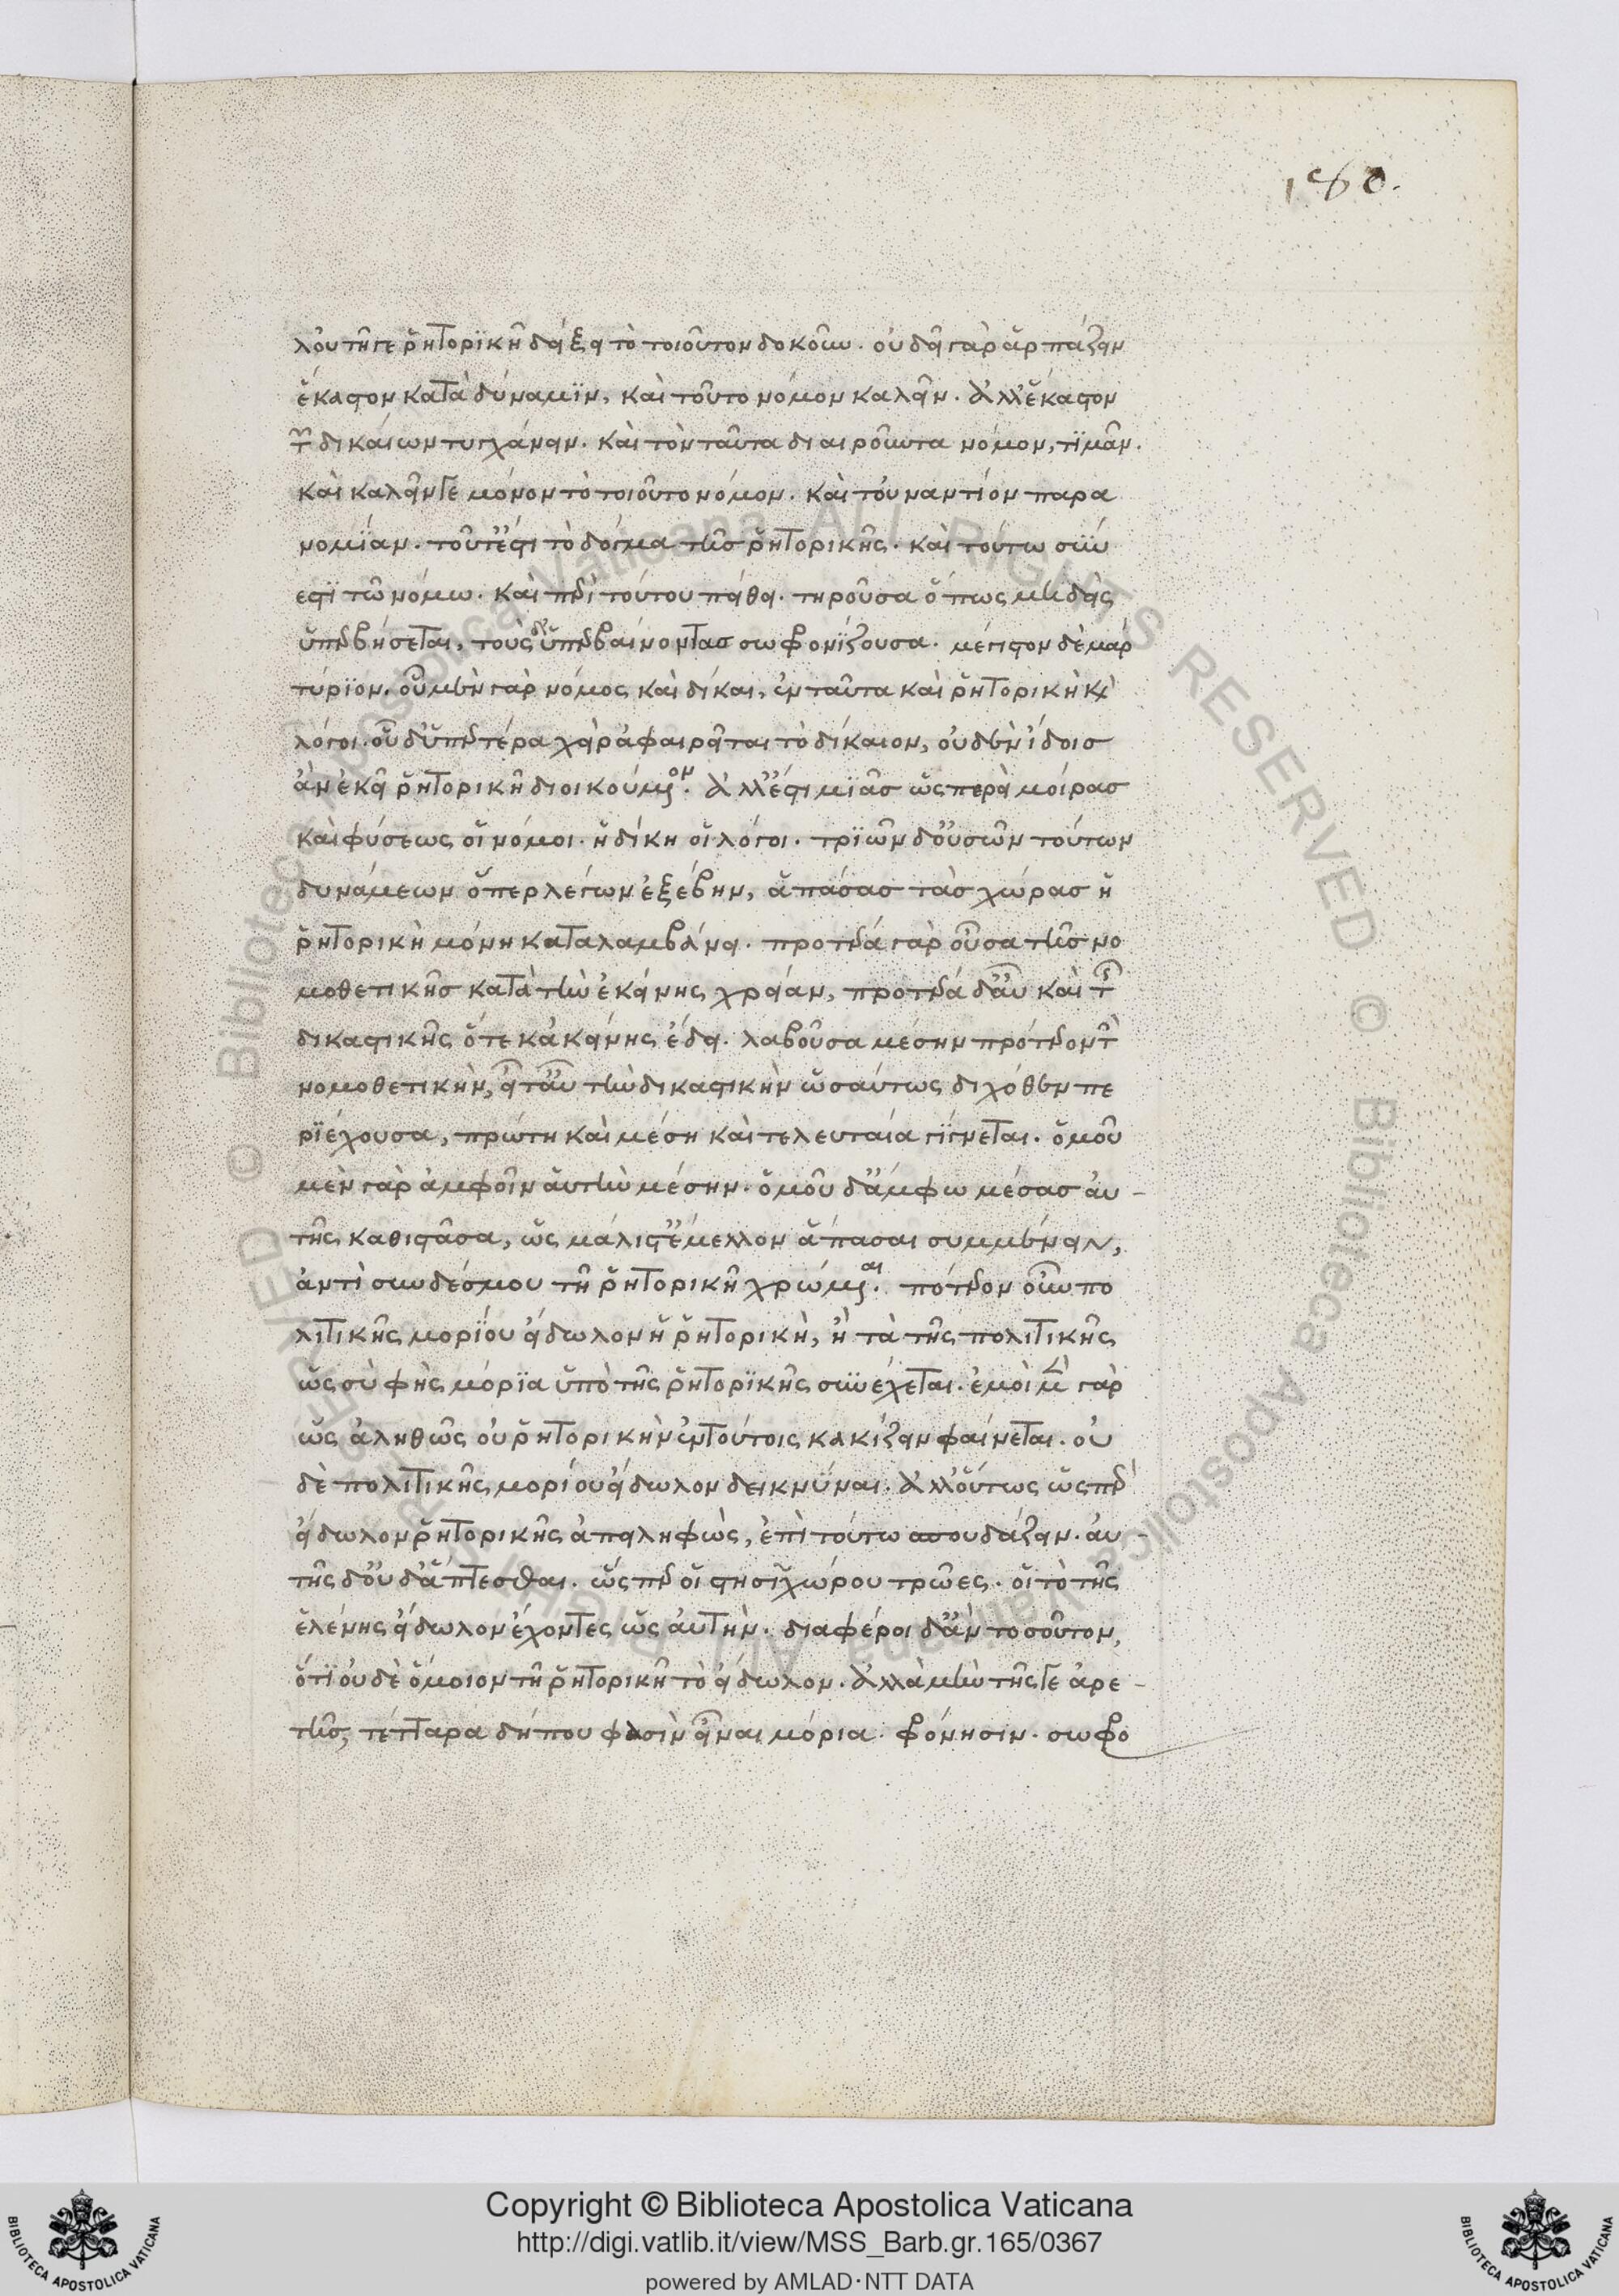 180.
λου τῆ γε ῥητορικῆ δείξει τὸ τοιοῦτον δοκοῦν. οὐ δεῖ γὰρ ἁρπάζειν
ἕκαστον κατὰ δύναμιν, καὶ τοῦτο νόμον καλεῖν. ἀλλ' ἕκαστον
τῶν δικαίων τυγχάνειν. καὶ τὸν ταῦτα διαιροῦντα νόμον, τιμᾶν.
καὶ καλεῖν γε μόνον τὸ τοιοῦτο νόμον. καὶ τοὐναντίον παρα
νομίαν. τοῦτ' ἔστι τὸ δόγμα τῆς ῥητορικῆς. καὶ τούτω σύν
εστι τῶ νόμω. καὶ περὶ τούτου πείθει. τηροῦσα ὅπως μηδεὶς
ὑπερβήσεται, τοὺς δ' ὑπερβαίνοντας σωφρονίζουσα. μέγιστον δὲ μαρ
τύριον. οὗ μὲν γὰρ νόμος καὶ δίκαι, ἐνταῦθα καὶ ῥητορικὴ καὶ
λόγοι. οὗ δ' ὑπερτέρα χεὶρ ἀφαιρεῖται τὸ δίκαιον, οὐδὲν ἴδοις
ἂν ἐκεῖ ῥητορικῆ διοικούμενον. ἀλλ' ἔστι μιᾶς ὥσπερεὶ μοίρας
καὶ φύσεως οἱ νόμοι. ἡ δίκη οἱ λόγοι. τριῶν δ' οὐσῶν τούτων
δυνάμεων ὅπερ λέγων ἐξέβην, ἁπάσας τὰς χώρας ἡ
ῥητορικὴ μόνη καταλαμβάνει. προτέρα γὰρ οὖσα τῆς νο
μοθετικῆς κατὰ τὴν ἐκείνης χρείαν, προτέρα δ' αὖ καὶ τῆς
δικαστικῆς ὅτε κἀκείνης ἔδει. λαβοῦσα μέσην πρότερον τὴν
νομοθετικὴν, εἶτ' αὖ τὴν δικαστικὴν ὡσαύτως διχόθεν πε
ριέχουσα, πρώτη καὶ μέση καὶ τελευταία γίγνεται. ὁμοῦ
μὲν γὰρ ἀμφοῖν αὑτὴν μέσην. ὁμοῦ δ' ἄμφω μέσας αὑ-
τῆς καθιστᾶσα, ὡς μάλιστ' ἔμελλον ἅπασαι συμμένειν,
ἀντὶ συνδέσμου τῆ ῥητορικῆ χρώμεναι. πότερον οὖν πο
λιτικῆς μορίου εἴδωλον ἡ ῥητορικὴ, ἢ τὰ τῆς πολιτικῆς
ὡς σὺ φὴς μόρια ὑπὸ τῆς ῥητορικῆς συνέχεται. ἐμοὶ μὲν γὰρ
ὡς ἀληθῶς οὐ ῥητορικὴν ἐν τούτοις κακίζειν φαίνεται. οὐ
δὲ πολιτικῆς μορίου εἴδωλον δεικνύναι. ἀλλ' οὕτως ὥσπερ
εἴδωλον ῥητορικῆς ἀπειληφὼς, ἐπὶ τούτω σπουδάζειν. αὐ-
τῆς δ' οὐδ' ἅπτεσθαι. ὥσπερ οἱ στησιχώρου τρῶες. οἱ τὸ τῆς
ἑλένης εἴδωλον ἔχοντες ὡς αὐτήν. διαφέροι δ' ἂν τοσοῦτον,
ὅτι οὐδὲ ὅμοιον τῆ ῥητορικῆ τὸ εἴδωλον. ἀλλὰ μὴν τῆς γε ἀρε-
τῆς, τέτταρα δήπου φασὶν εἶναι μόρια. φρόνησιν. σωφρο
Copyright © Biblioteca Apostolica Vaticana
http://digi.vatlib.it/view/MSS_Barb.gr.165/0367
powered by AMLAD·NTT DATA